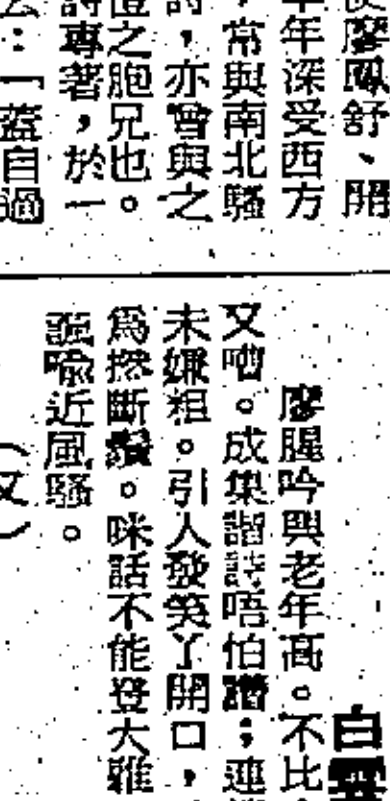 使廖鳳舒、開
年深受西方
,常與南北騷
詩,亦曾與之
澄之胞兄也。
詩專著,於一
云:「蓋自過
白雲
廖腥吟興老年高。不比
又嘈。成集諧詩唔怕譖;連
未嫌粗。引人發笑丫開口,
為撚斷鬚。咪話不能登大雅
諷喻近風騷。
(又)